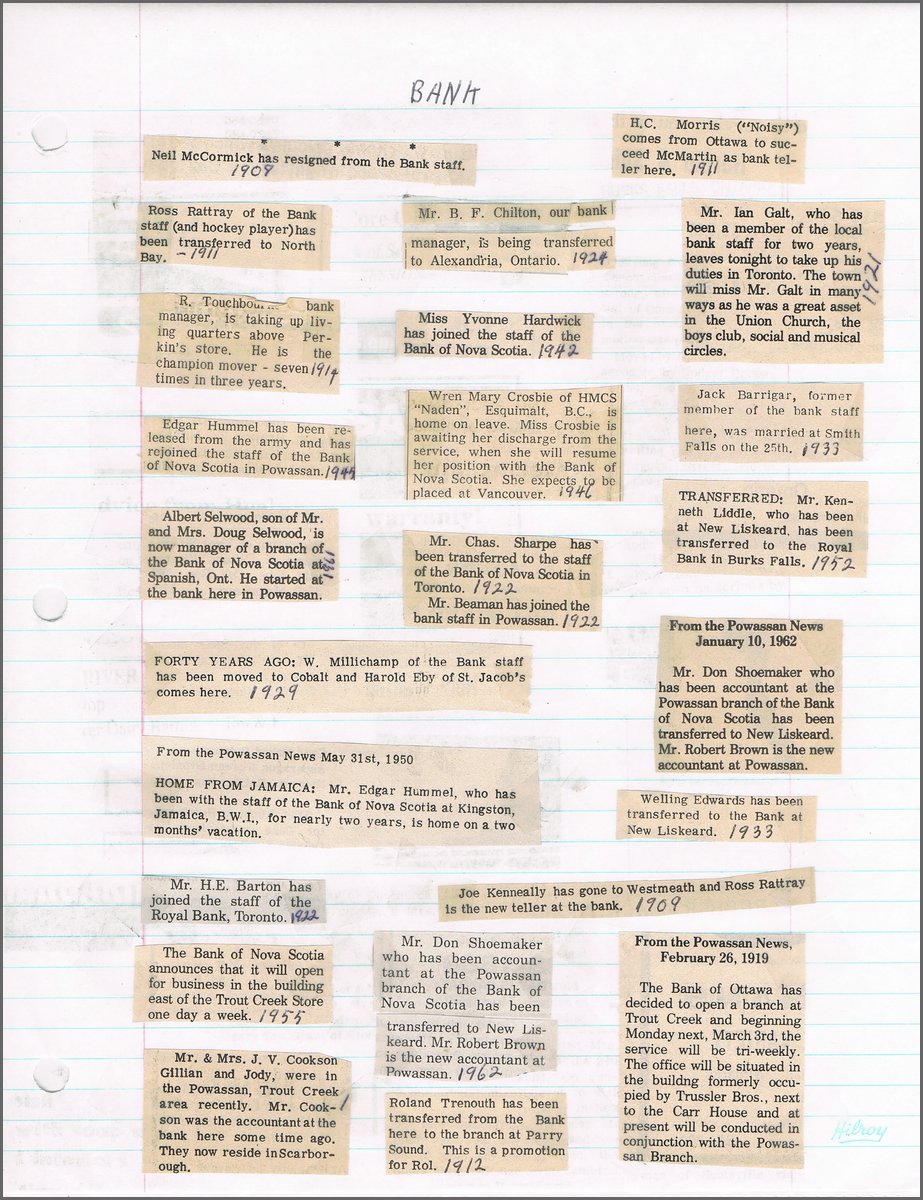 BANK
* * *
Neil McCormick has resigned from the Bank staff.
1909
H.C. Morris ("Noisy")
comes from Ottawa to suc-
ceed McMartin as bank tel-
ler here. 1911
Ross Rattray of the Bank
staff (and hockey player) has
been transferred to North
Bay. - 1911
Mr. B. F. Chilton, our bank
manager, is being transferred
to Alexandria, Ontario. 1924
Mr. Ian Galt, who has
been a member of the local
bank staff for two years,
leaves tonight to take up his
duties in Toronto. The town
will miss Mr. Galt in many
ways as he was a great asset
in the Union Church, the
boys club, social and musical
circles.
1921
R. bank
manager, is taking up liv-
ing quarters above Per-
kin's store. He is the
champion mover - seven 1914
times in three years.
Miss Yvonne Hardwick
has joined the staff of the
Bank of Nova Scotia. 1942
Wren Mary Crosbie of HMCS
"Naden", Esquimalt, B.C., is
home on leave. Miss Crosbie is
awaiting her discharge from the
service, when she will resume
her position with the Bank of
Nova Scotia. She expects to be
placed at Vancouver. 1946
Jack Barrigar, former
member of the bank staff
here, was married at Smith
Falls on the 25th. 1933
Edgar Hummel has been re-
leased from the army and has
rejoined the staff of the Bank
of Nova Scotia in Powassan. 1945
TRANSFERRED: Mr. Ken-
neth Liddle, who has been
at New Liskeard, has been
transferred to the Royal
Bank in Burks Falls. 1952
Albert Selwood, son of Mr.
and Mrs. Doug Selwood, is
now manager of a branch of
the Bank of Nova Scotia at
Spanish, Ont. He started at
the bank here in Powassan.
1961
Mr. Chas. Sharpe has
been transferred to the staff
of the Bank of Nova Scotia in
Toronto. 1922
Mr. Beaman has joined the
bank staff in Powassan. 1922
From the Powassan News
January 10, 1962
Mr. Don Shoemaker who
has been accountant at the
Powassan branch of the Bank
of Nova Scotia has been
transferred to New Liskeard.
Mr. Robert Brown is the new
accountant at Powassan.
FORTY YEARS AGO: W. Millichamp of the Bank staff
has been moved to Cobalt and Harold Eby of St. Jacob's
comes here. 1929
From the Powassan News May 31st, 1950
HOME FROM JAMAICA: Mr. Edgar Hummel, who has
been with the staff of the Bank of Nova Scotia at Kingston,
Jamaica, B.W.I., for nearly two years, is home on a two
months' vacation.
Welling Edwards has been
transferred to the Bank at
New Liskeard. 1933
Mr. H.E. Barton has
joined the staff of the
Royal Bank, Toronto. 1922
Joe Kenneally has gone to Westmeath and Ross Rattray
is the new teller at the bank. 1909
The Bank of Nova Scotia
announces that it will open
for business in the building
east of the Trout Creek Store
one day a week. 1955
Mr. Don Shoemaker
who has been accoun-
tant at the Powassan
branch of the Bank of
Nova Scotia has been
transferred to New Lis-
keard. Mr. Robert Brown
is the new accountant at
Powassan. 1962
From the Powassan News,
February 26, 1919
The Bank of Ottawa has
decided to open a branch at
Trout Creek and beginning
Monday next, March 3rd, the
service will be tri-weekly.
The office will be situated in
the buildng formerly occu-
pied by Trussler Bros., next
to the Carr House and at
present will be conducted in
conjunction with the Powas-
san Branch.
Mr. & Mrs. J. V. Cookson
Gillian and Jody, were in
the Powassan, Trout Creek
area recently. Mr. Cook-
son was the accountant at the
bank here some time ago.
They now reside in Scarbor-
ough.
Roland Trenouth has been
transferred from the Bank
here to the branch at Parry
Sound. This is a promotion
for Rol. 1912
Hilroy